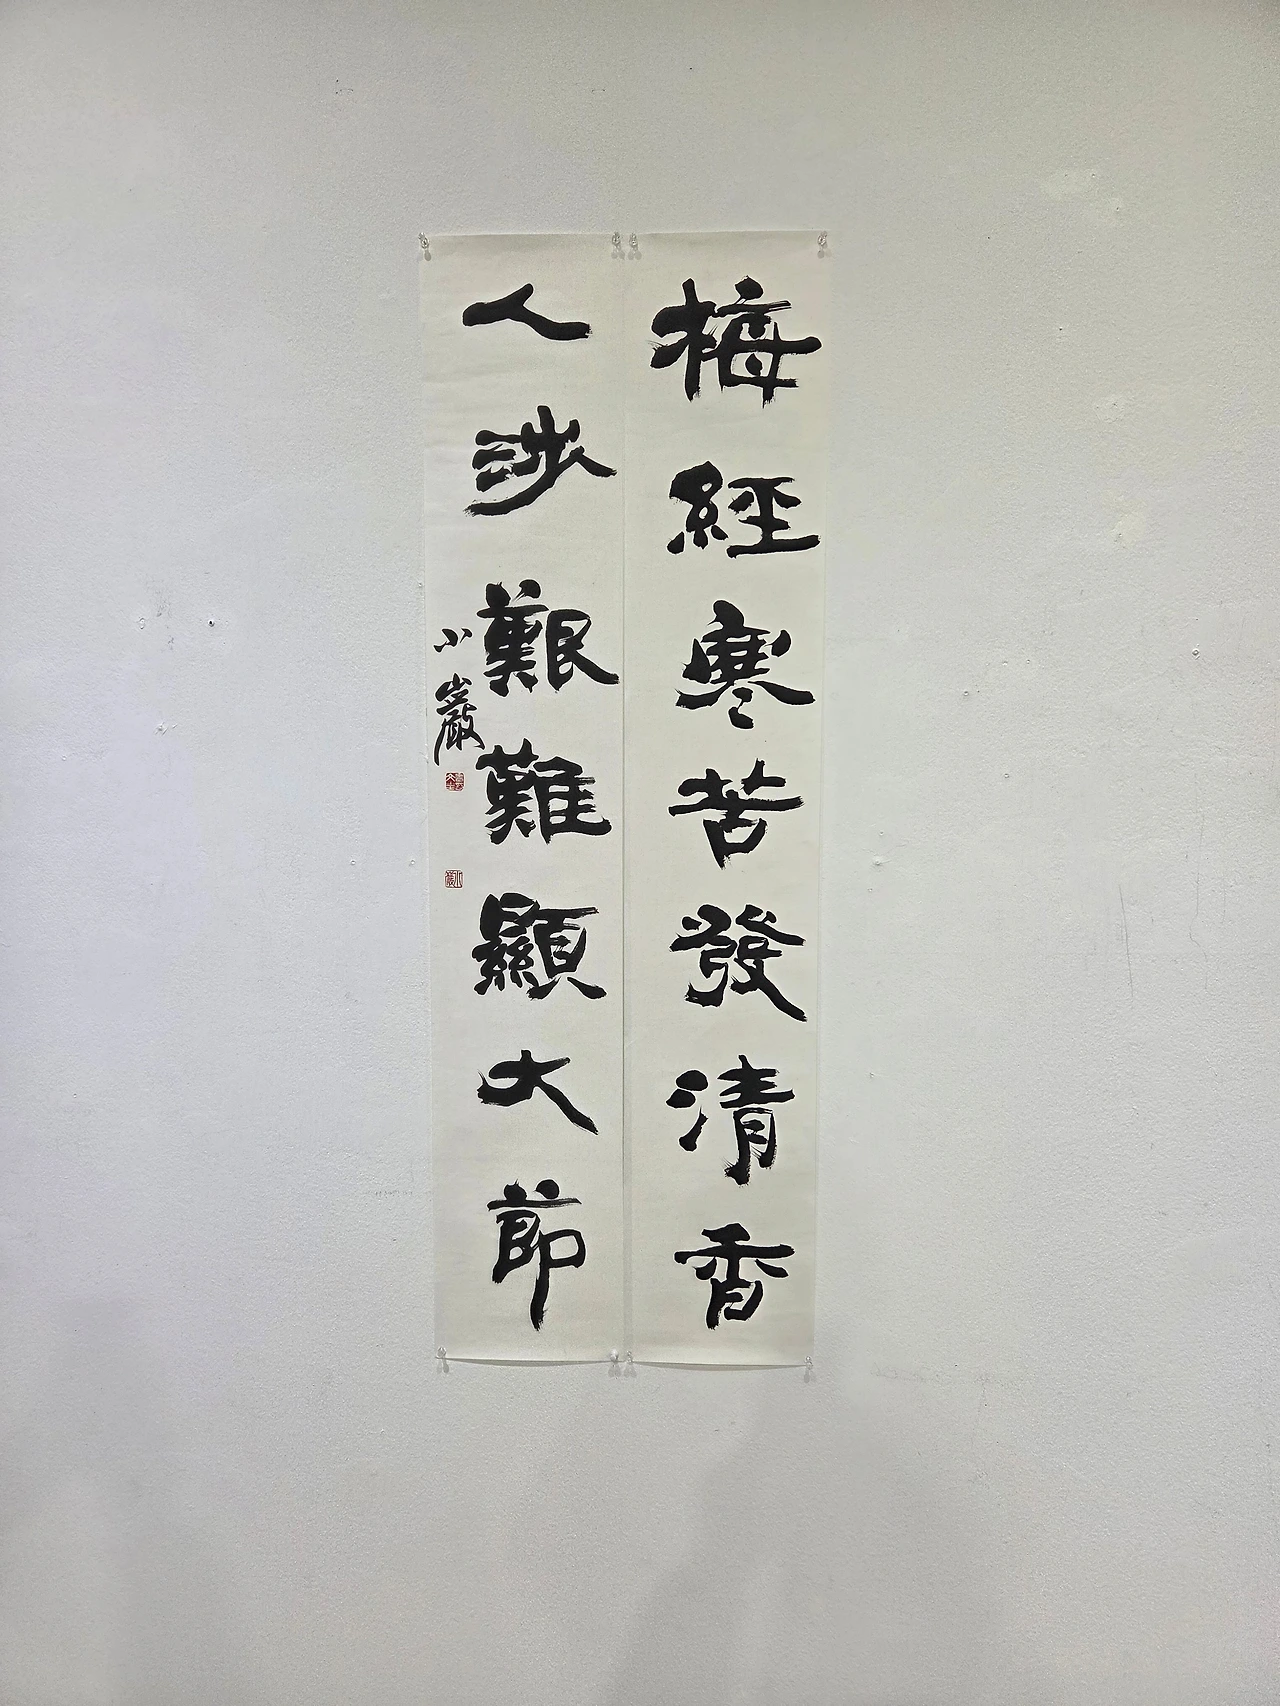 梅經寒苦發清香
人涉艱難顯大節
小巖